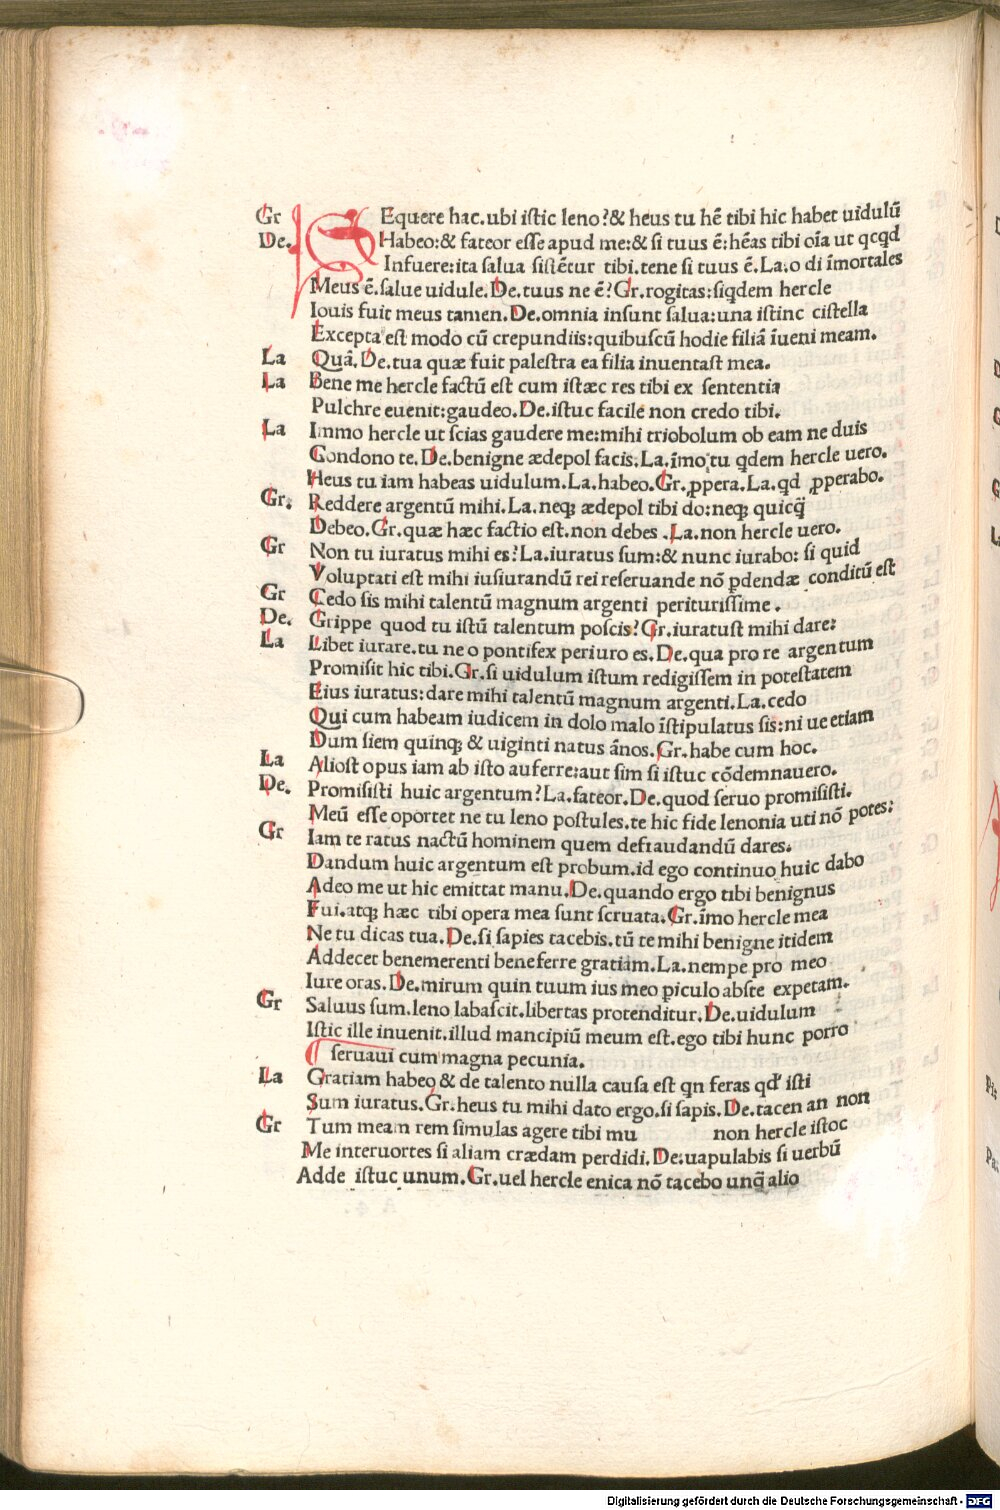 Gr SEquere hac. ubi iſtic leno?& heus tu hẽ tibi hic habet uidulũ
De. Habeo:& fateor eſſe apud me:& ſi tuus ẽ:hẽas tibi oĩa ut qcqd
Infuere:ita ſalua ſiſtẽtur tibi.tene ſi tuus ẽ.La.o di ĩmortales
Meus ẽ.ſalue uidule.De.tuus ne ẽ?Gr.rogitas:ſiqdem hercle
Iouis fuit meus tamen.De.omnia inſunt ſalua:una iſtinc ciſtella
Excepta eſt modo cũ crepundiis:quibuſcũ hodie filiã ĩueni meam.
La Quã.De.tua quæ fuit paleſtra ea filia inuentaſt mea.
La Bene me hercle factũ eſt cum iſtæc res tibi ex ſententia
Pulchre euenit:gaudeo.De.iſtuc facile non credo tibi.
La Immo hercle ut ſcias gaudere me:mihi triobolum ob eam ne duis
Condono te.De.benigne ædepol facis.La.ĩmo tu qdem hercle uero.
Heus tu iam habeas uidulum.La.habeo.Gr.ꝓpera.La.qd ꝓperabo.
Gr. Reddere argentũ mihi.La.neqꝫ ædepol tibi do:neqꝫ quicq̃
Debeo.Gr.quæ hæc factio eſt.non debes .La.non hercle uero.
Gr Non tu iuratus mihi es?La.iuratus ſum:& nunc iurabo: ſi quid
Voluptati eſt mihi iuſiurandũ rei reſeruande nõ ꝑdendæ conditũ eſt
Gr Cedo ſis mihi talentũ magnum argenti perituriſſime .
De. Grippe quod tu iſtũ talentum poſcis?Gr.iuratuſt mihi dare:
La Libet iurare.tu ne o pontifex periuro es.De.qua pro re argentum
Promiſit hic tibi.Gr.ſi uidulum iſtum redigiſſem in poteſtatem
Eius iuratus:dare mihi talentũ magnum argenti.La.cedo
Qui cum habeam iudicem in dolo malo ĩſtipulatus ſis:ni ue etiam
Dum ſiem quinqꝫ & uiginti natus ãnos.Gr.habe cum hoc.
La Alioſt opus iam ab iſto auferre:aut ſim ſi iſtuc cõdemnauero.
De. Promiſiſti huic argentum?La.fateor.De.quod ſeruo promiſiſti.
Meũ eſſe oportet ne tu leno poſtules.te hic fide lenonia uti nõ potes:
Gr Iam te ratus nactũ hominem quem defraudandũ dares.
Dandum huic argentum eſt probum.id ego continuo huic dabo
Adeo me ut hic emittat manu.De.quando ergo tibi benignus
Fui.atqꝫ hæc tibi opera mea ſunt ſeruata.Gr.ĩmo hercle mea
Ne tu dicas tua.De.ſi ſapies tacebis.tũ te mihi benigne itidem
Addecet benemerenti beneferre gratiam.La.nempe pro meo
Iure oras.De.mirum quin tuum ius meo ꝑiculo abſte expetam.
Gr Saluus ſum.leno labaſcit.libertas protenditur.De.uidulum
Iſtic ille inuenit.illud mancipiũ meum eſt.ego tibi hunc porro
ſeruaui cum magna pecunia.
La Gratiam habeo & de talento nulla cauſa eſt qn feras qd' iſti
Sum iuratus.Gr.heus tu mihi dato ergo.ſi ſapis.De.tacen an non
Gr Tum meam rem ſimulas agere tibi mu non hercle iſtoc
Me interuortes ſi aliam crædam perdidi.De.uapulabis ſi uerbũ
Adde iſtuc unum.Gr.uel hercle enica nõ tacebo unq̃ alio
Digitalisierung gefördert durch die Deutsche Forschungsgemeinschaft - DFG